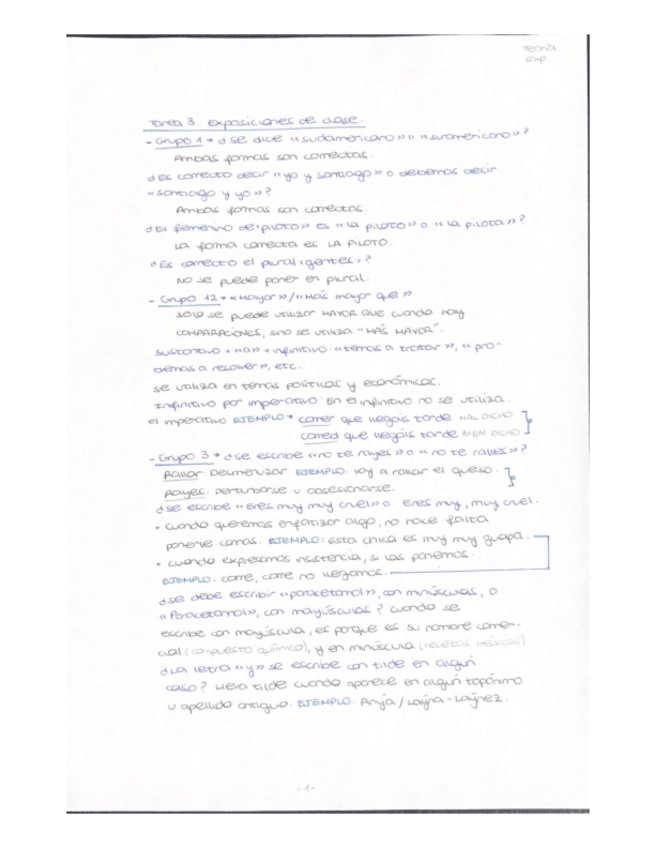 Teoría
exp.
Tarea 3. Exposiciones de clase.
- Grupo 1 → ¿Se dice «sudamericano» o «suramericano»?
Ambas formas son correctas.
¿Es correcto decir «yo y Santiago» o debemos decir
«Santiago y yo»?
Ambas formas son correctas.
¿El femenino de «piloto» es «la piloto» o «la pilota»?
La forma correcta es LA PILOTO.
¿Es correcto el plural «gentes»?
No se puede poner en plural.
- Grupo 12 → «Mayor» / «Más mayor que»
Solo se puede utilizar MAYOR QUE cuando hay
COMPARACIONES, sino se utiliza "MÁS MAYOR".
Sustantivo + «a» + infinitivo: «temas a tratar», «pro-
blemas a resolver», etc.
Se utiliza en temas políticos y económicos.
Infinitivo por imperativo: En el infinitivo no se utiliza.
el imperativo EJEMPLO → correr que llegáis tarde MAL DICHO
corred que llegáis tarde BIEN DICHO
- Grupo 3 → ¿Se escribe «no te rayes» o «no te ralles»?
Rallar: Desmenuzar EJEMPLO: Voy a rallar el queso.
Rayes: Perturbarse u obsesionarse.
¿Se escribe «Eres muy muy cruel» o Eres muy, muy cruel.
• Cuando queremos enfatizar algo, no hace falta
ponerle comas. EJEMPLO: Esta chica es muy muy guapa.
• Cuando expresamos insistencia, si las ponemos.
EJEMPLO: Corre, corre no llegamos.
¿Se debe escribir «paracetamol», con minúsculas, o
«Paracetamol», con mayúsculas? Cuando se
escribe con mayúscula, es porque es su nombre comer-
cial (compuesto químico), y en minúscula (recetas médicas)
¿La letra «y» se escribe con tilde en algún
caso? Lleva tilde cuando aparece en algún topónimo
u apellido antiguo. EJEMPLO:
-1-